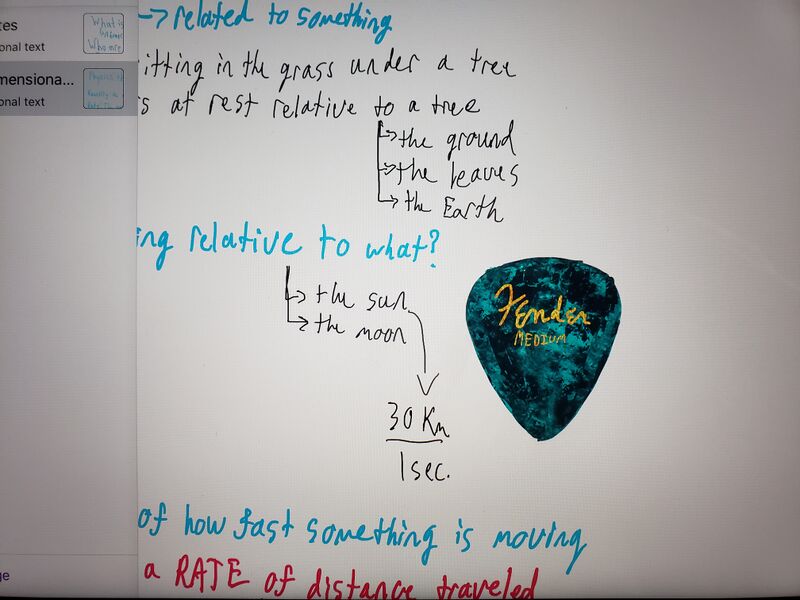 tes
onal text
What is
Who are
mensiona...
onal text
→ related to something
itting in the grass under a tree
s at rest relative to a tree
→ the ground
→ the leaves
→ the Earth
ing relative to what?
→ the sun
→ the moon
30 Km
1 sec.
Fender
MEDIUM
of how fast something is moving
a RATE of distance traveled
ge